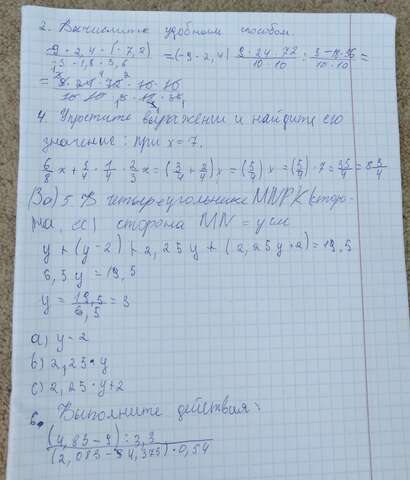 2. Вычислите удобным способом.
9 · 2,4 · (-7,2) / -3 · 1,8 · 3,6 = (-9 · 2,4) 9 · 24 · 72 / 10 · 10 : 3 - 18 · 36 / 10 · 10 =
4. Упростите выражении и найдите его
значение: при x = 7.
6/8 x + 3/4 · 1/4 · 2/3 x = (3/4 + 2/4) x = (5/4) x = (5/4) · 7 = 35/4 = 8 3/4
(3а) 5. В четыреугольнике MNPK (сторо-
на, ес) сторона MN = y см
y + (y - 2) + 2,25 y + (2,25 y + 2) = 19,5
6,5 y = 19,5
y = 19,5 / 6,5 = 3
a) y - 2
b) 2,25 · y
c) 2,25 · y + 2
6. Выполните действия:
(4,85 - 9) : 3,3 / (2,085 - 54,375) · 0,54